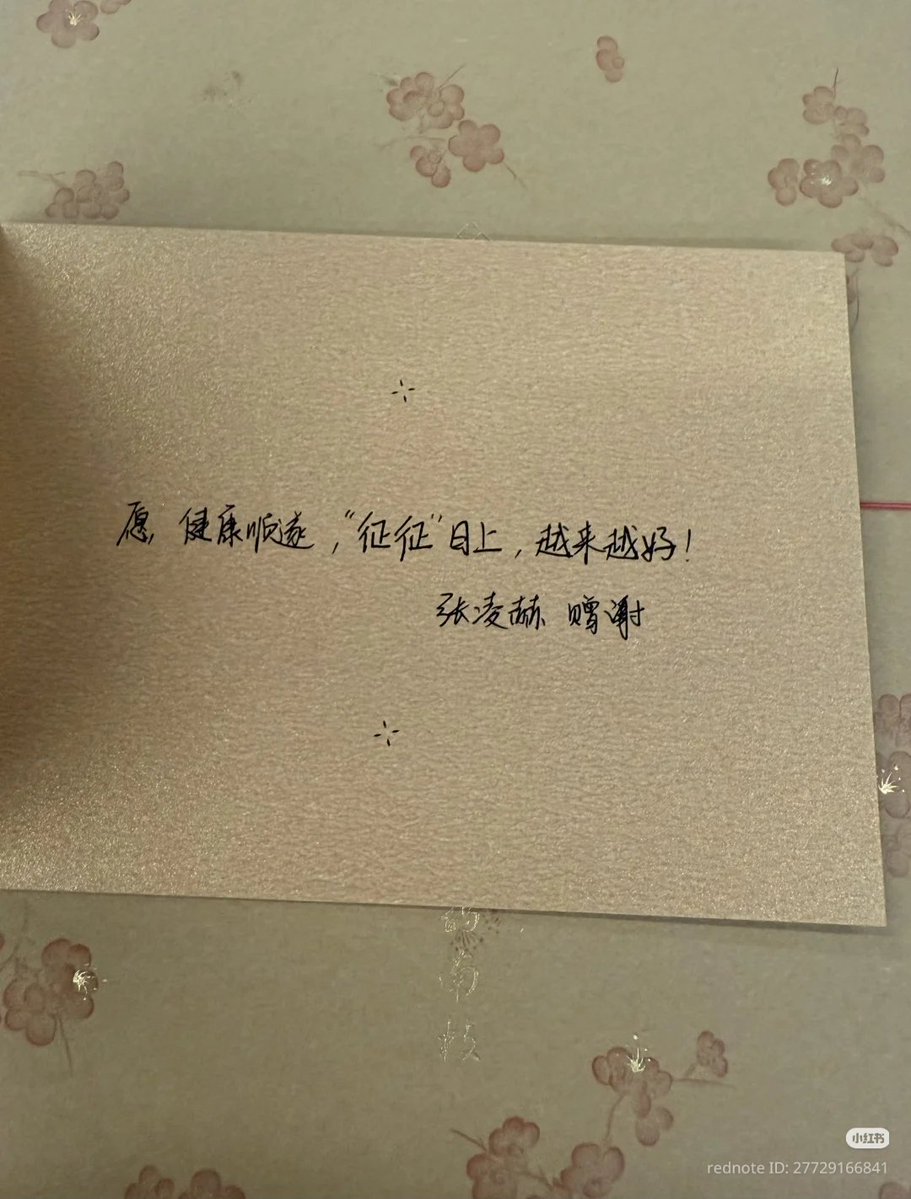 愿，健康顺遂，“征征”日上，越来越好！
张凌赫 赠谢
南
枝
小红书
rednote ID: 27729166841